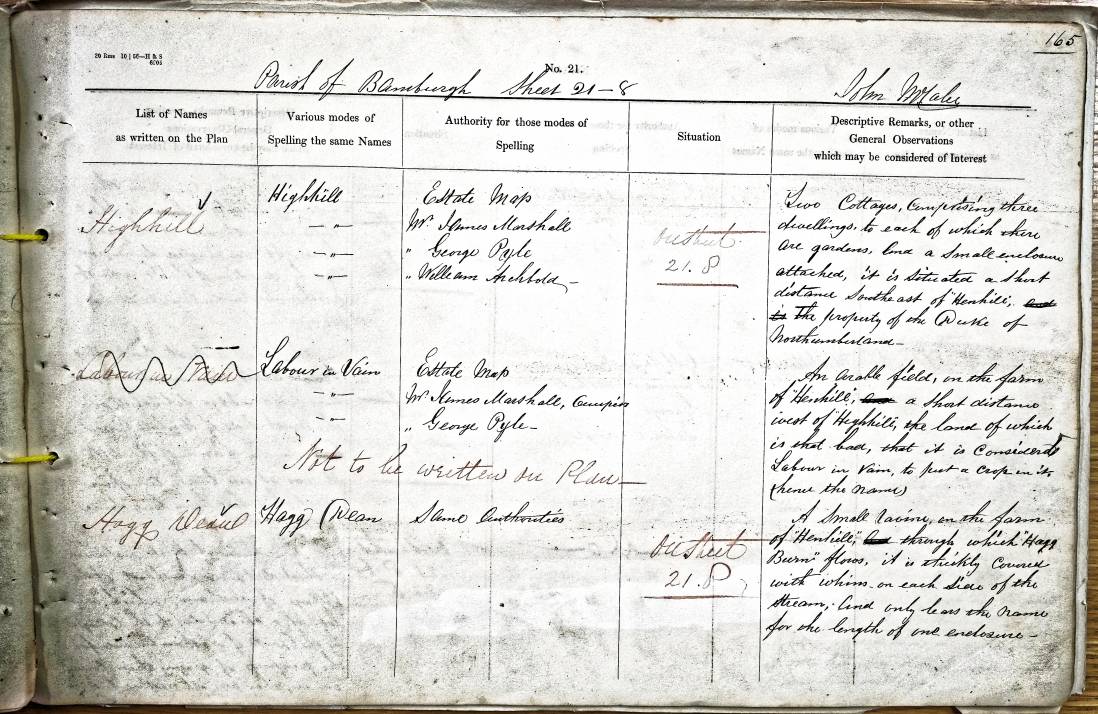 165
20 Rms 10 | 56—H & S
No. 21.
Parish of Bamburgh Sheet 21-8
John McCabe
List of Names
as written on the Plan
Various modes of
Spelling the same Names
Authority for those modes of
Spelling
Situation
Descriptive Remarks, or other
General Observations
which may be considered of Interest
Highhill
Highhill
— „ —
— „ —
— „ —
Estate Map
Mr. James Marshall
„ George Pyle
„ William Archbold -
on sheet
21.8
Two Cottages, Comprising three
dwellings, to each of which there
are gardens, and a small enclosure
attached, it is situated a short
distance Southeast of "Henhill", and
is the property of the Duke of
Northumberland -
Labour in Vain
Labour in Vain
— „ —
— „ —
Estate Map
Mr James Marshall,
„ George Pyle -
Not to be written on Plan -
An arable field, on the farm
of "Henhill", and a short distance
west of "Highhill", the land of which
is that bad, that it is Considered
Labour in Vain, to put a crop in it
(hence the name)
Hagg Dean
Hagg Dean
Same Authorities
on sheet
21.8
A Small ravine, on the farm
of "Henhill", and through which "Hagg
Burn" flows, it is thickly Covered
with whins on each side of the
stream, and only bears the name
for the length of one enclosure -